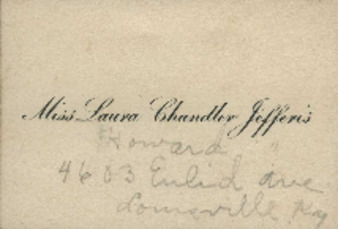 Miss Laura Chandler Jefferis
Howard "
4603 Euclid Ave
Louisville Ky